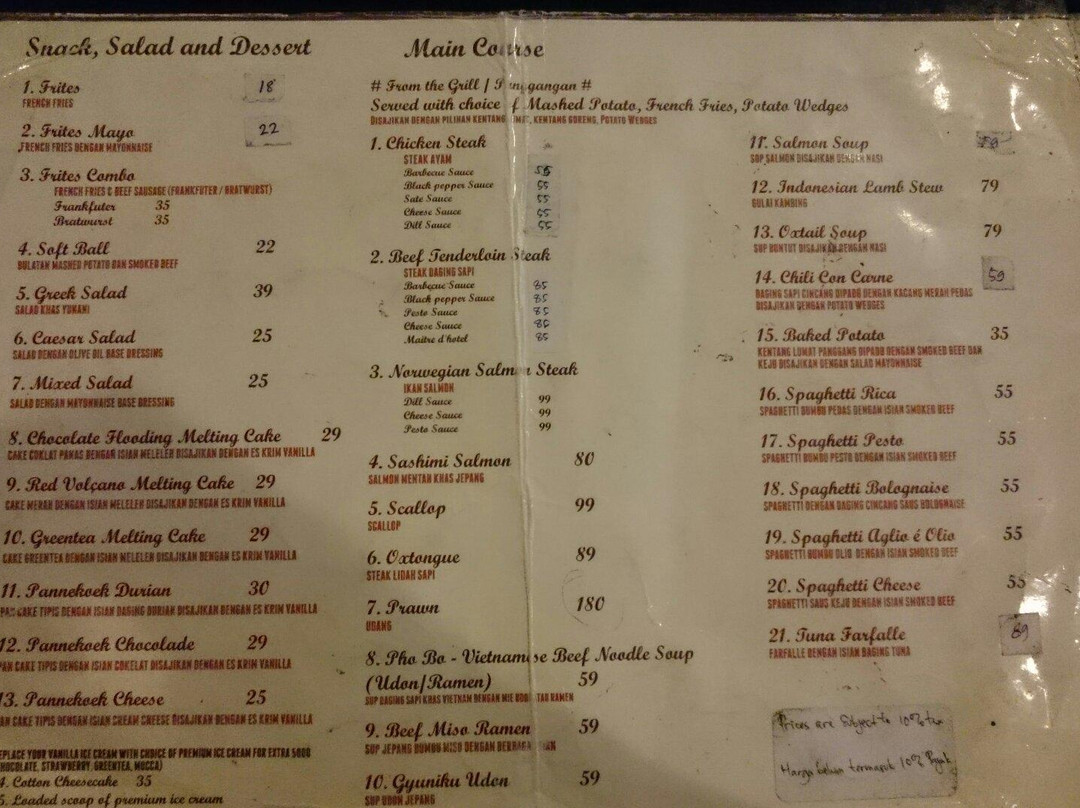 Snack, Salad and Dessert
1. Frites 18
FRENCH FRIES
2. Frites Mayo 22
FRENCH FRIES DENGAN MAYONNAISE
3. Frites Combo
FRENCH FRIES & BEEF SAUSAGE (FRANKFUTER / BRATWURST)
Frankfuter 35
Bratwurst 35
4. Soft Ball 22
BULATAN MASHED POTATO DAN SMOKED BEEF
5. Greek Salad 39
SALAD KHAS YUNANI
6. Caesar Salad 25
SALAD DENGAN OLIVE OIL BASE DRESSING
7. Mixed Salad 25
SALAD DENGAN MAYONNAISE BASE DRESSING
8. Chocolate Flooding Melting Cake 29
CAKE COKLAT PANAS DENGAN ISIAN MELELEH DISAJIKAN DENGAN ES KRIM VANILLA
9. Red Volcano Melting Cake 29
CAKE MERAH DENGAN ISIAN MELELEH DISAJIKAN DENGAN ES KRIM VANILLA
10. Greentea Melting Cake 29
CAKE GREENTEA DENGAN ISIAN MELELEH DISAJIKAN DENGAN ES KRIM VANILLA
11. Pannekoek Durian 30
PANCAKE TIPIS DENGAN ISIAN DAGING DURIAN DISAJIKAN DENGAN ES KRIM VANILLA
12. Pannekoek Chocolade 29
PAN CAKE TIPIS DENGAN ISIAN COKELAT DISAJIKAN DENGAN ES KRIM VANILLA
13. Pannekoek Cheese 25
AN CAKE TIPIS DENGAN ISIAN CREAM CHEESE DISAJIKAN DENGAN ES KRIM VANILLA
EPLACE YOUR VANILLA ICE CREAM WITH CHOICE OF PREMIUM ICE CREAM FOR EXTRA 5000
HOCOLATE, STRAWBERRY, GREENTEA, MOCCA)
4. Cotton Cheesecake 35
5. Loaded scoop of premium ice cream
Main Course
# From the Grill / Panggangan #
Served with choice of Mashed Potato, French Fries, Potato Wedges
DISAJIKAN DENGAN PILIHAN KENTANG LUMAT, KENTANG GORENG, POTATO WEDGES
1. Chicken Steak
STEAK AYAM
Barbecue Sauce 55
Black pepper Sauce 55
Sate Sauce 55
Cheese Sauce 55
Dill Sauce 55
2. Beef Tenderloin Steak
STEAK DAGING SAPI
Barbecue Sauce 85
Black popper Sauce 85
Pesto Sauce 85
Cheese Sauce 85
Maitre d'hotel 85
3. Norwegian Salmon Steak
IKAN SALMON
Dill Sauce 99
Cheese Sauce 99
Pesto Sauce 99
4. Sashimi Salmon 80
SALMON MENTAH KHAS JEPANG
5. Scallop 99
SCALLOP
6. Oxtongue 89
STEAK LIDAH SAPI
7. Prawn 180
UDANG
8. Pho Bo - Vietnamese Beef Noodle Soup
(Udon/Ramen) 59
SUP DAGING SAPI KHAS VIETNAM DENGAN MIE UDON ATAU RAMEN
9. Beef Miso Ramen 59
SUP JEPANG BUMBU MISO DENGAN
10. Gyuniku Udon 59
SUP UDON JEPANG
11. Salmon Soup 59
SUP SALMON DISAJIKAN DENGAN NASI
12. Indonesian Lamb Stew 79
GULAI KAMBING
13. Oxtail Soup 79
SUP BUNTUT DISAJIKAN DENGAN NASI
14. Chili Con Carne 59
DAGING SAPI CINCANG DIPADU DENGAN KACANG MERAH PEDAS
DISAJIKAN DENGAN POTATO WEDGES
15. Baked Potato 35
KENTANG LUMAT PANGGANG DIPADU DENGAN SMOKED BEEF DAN
KEJU DISAJIKAN DENGAN SALAD MAYONNAISE
16. Spaghetti Rica 55
SPAGHETTI BUMBU PEDAS DENGAN ISIAN SMOKED BEEF
17. Spaghetti Pesto 55
SPAGHETTI BUMBU PESTO DENGAN ISIAN SMOKED BEEF
18. Spaghetti Bolognaise 55
SPAGHETTI DENGAN DAGING CINCANG SAUS BOLOGNAISE
19. Spaghetti Aglio é Olio 55
SPAGHETTI BUMBU OLIO DENGAN ISIAN SMOKED BEEF
20. Spaghetti Cheese 55
SPAGHETTI SAUS KEJU DENGAN ISIAN SMOKED BEEF
21. Tuna Farfalle 89
FARFALLE DENGAN ISIAN DAGING TUNA
Prices are Subject to 10% tax
Harga belum termasuk 10% Pajak